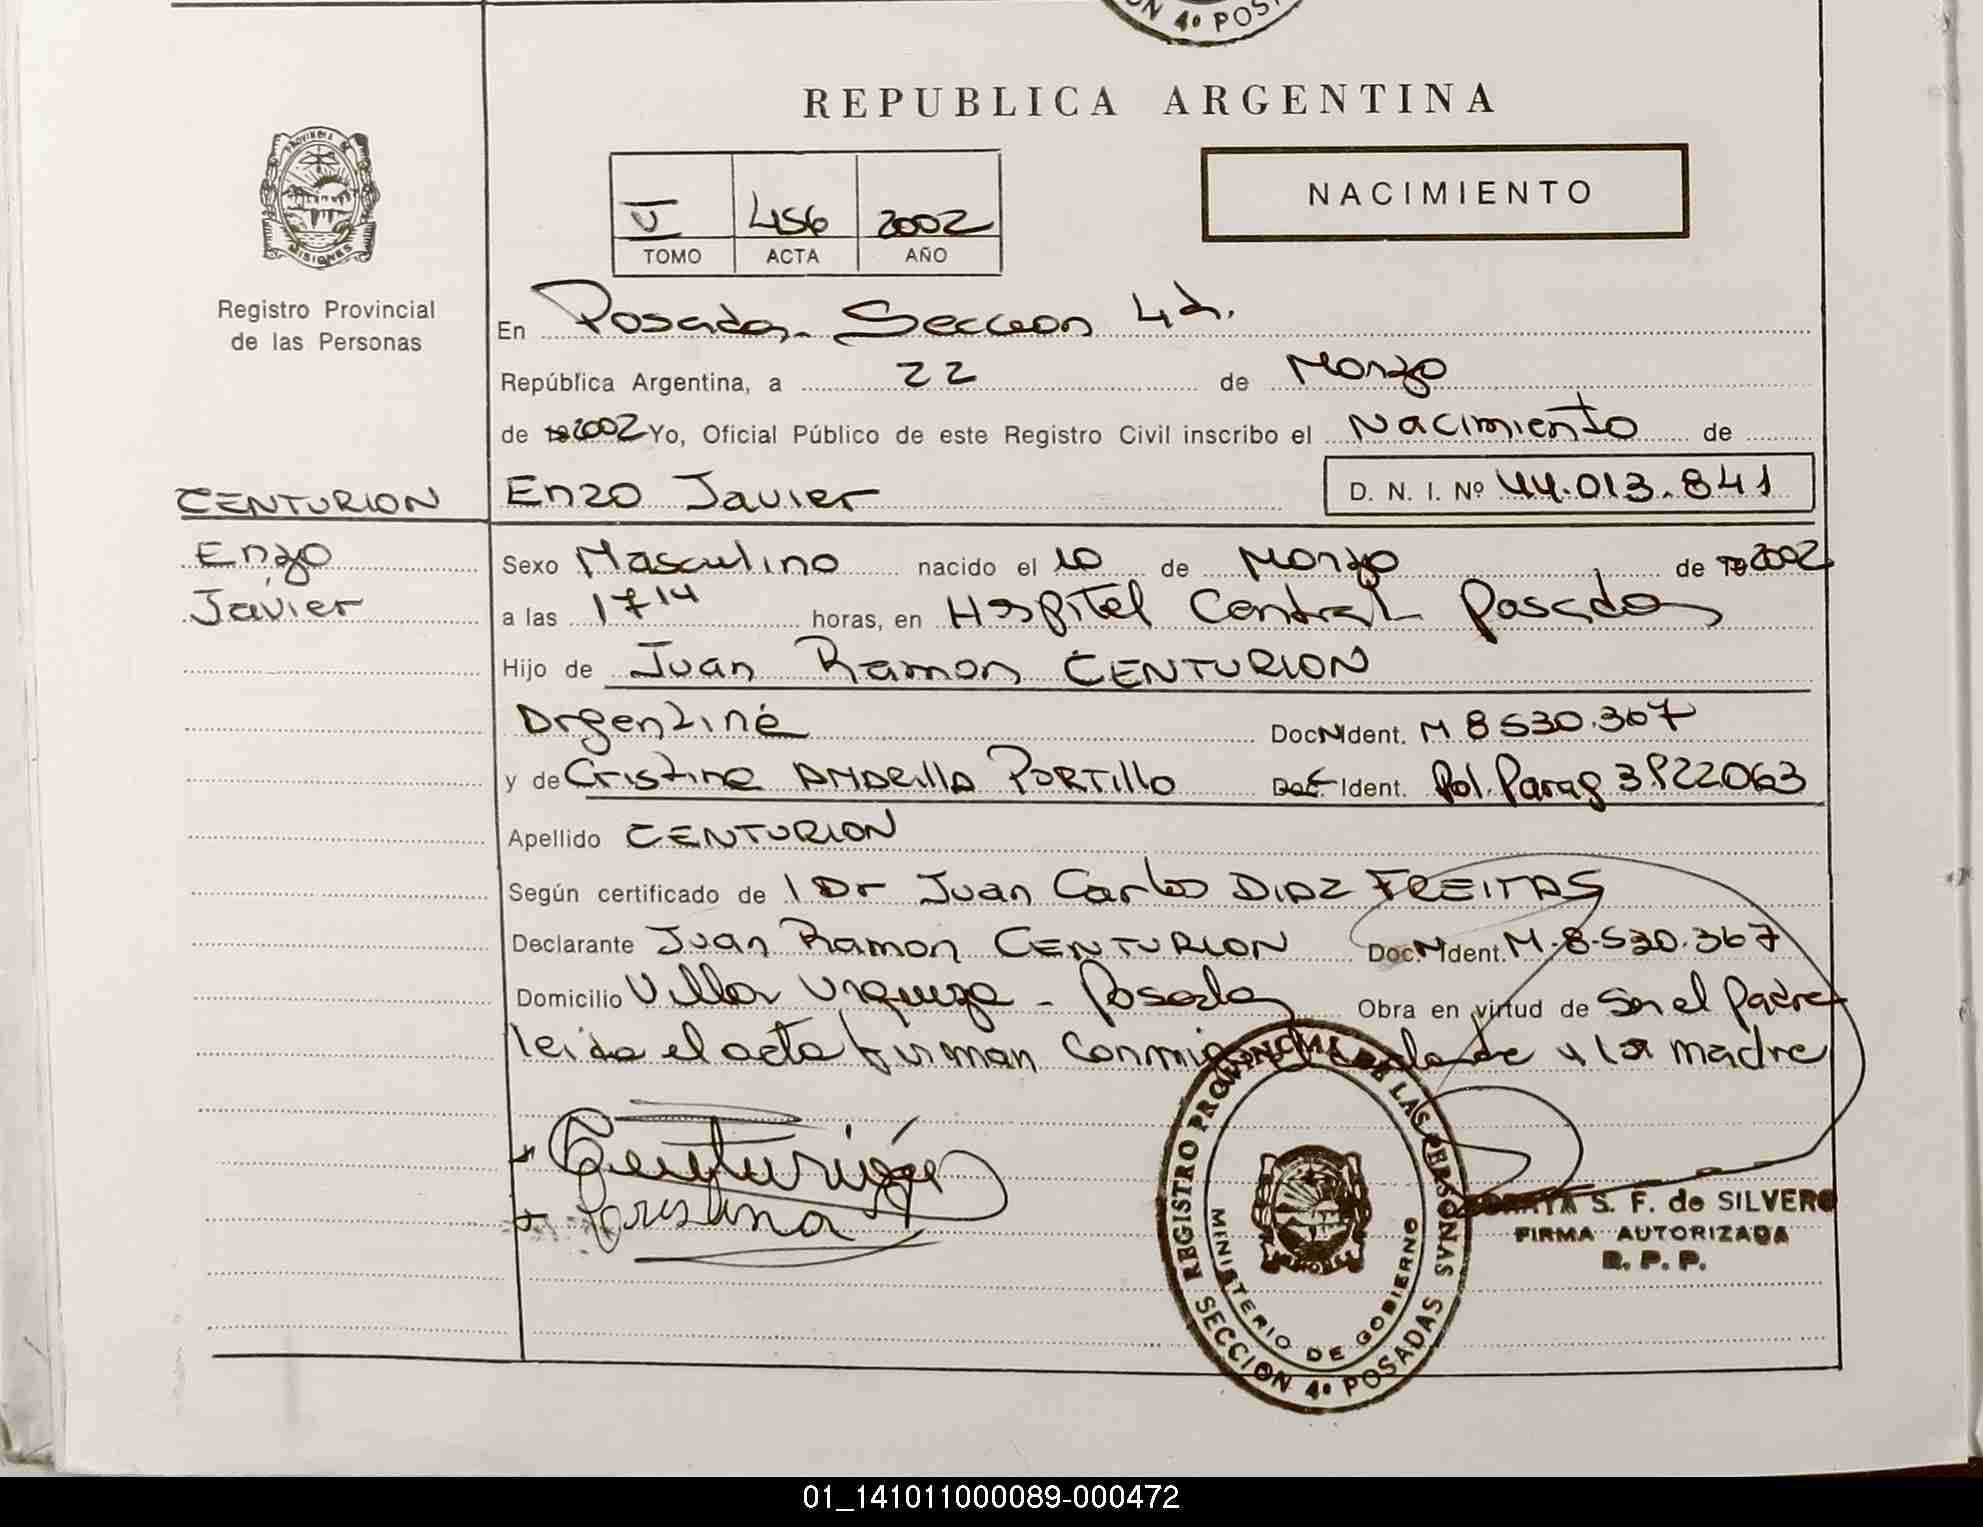 N 4º POS
REPUBLICA ARGENTINA
PROVINCIA DE MISIONES
V 456 2002
TOMO ACTA AÑO
NACIMIENTO
Registro Provincial
de las Personas
En Posadas Seccion 4ª.
República Argentina, a 22 de Marzo
de 2002 Yo, Oficial Público de este Registro Civil inscribo el Nacimiento de
CENTURION Enzo Javier D. N. I. Nº 44.013.841
Enzo
Javier
Sexo Masculino nacido el 10 de Marzo de 2002
a las 17 14 horas, en Hospital Central Posadas
Hijo de Juan Ramon CENTURION
Argentina Doc. Ident. M 8 530.367
y de Cristina AMARILLA PORTILLO Ident. Pol. Parag 3.922063
Apellido CENTURION
Según certificado de 1 Dr Juan Carlos DIAZ FREITAS
Declarante Juan Ramon CENTURION Doc. Ident. M.8.530.367
Domicilio Villa Urquiza - Posadas Obra en virtud de Ser el padre
leida el acta firman Conmigo y la madre
Centurión
Cristina
REGISTRO PROVINCIAL DE LAS PERSONAS
MINISTERIO DE GOBIERNO
SECCION 4º POSADAS
S. F. de SILVERO
FIRMA AUTORIZADA
R. P. P.
01_141011000089-000472